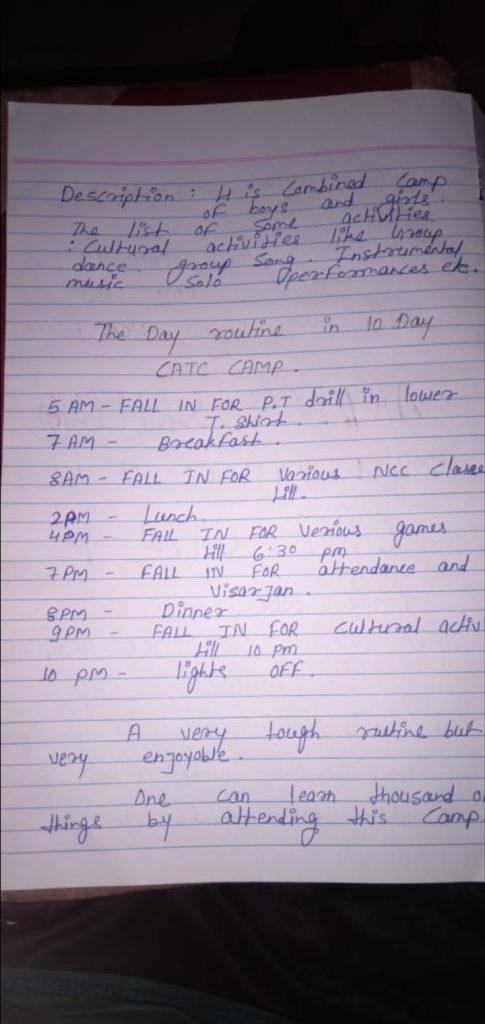 Description : It is Combined Camp
of boys and girls.
The list of some activities.
: Cultural activities like Group
dance, group Song. Instrumental
music Solo performances etc.
The Day routine in 10 Day
CATC CAMP.
5 AM - FALL IN FOR P.T drill in lower
T. Shirt.
7 AM - Breakfast.
8AM - FALL IN FOR Various NCC Classe
till.
2PM - Lunch
4PM - FALL IN FOR Verious games
till 6:30 pm
7 PM - FALL IN FOR attendance and
Visarjan.
8PM - Dinner
9PM - FALL IN FOR Cultural activ
till 10 pm
10 PM - lights OFF.
A very tough rutine but
very enjoyoble.
One can learn thousand o
things by attending this Camp